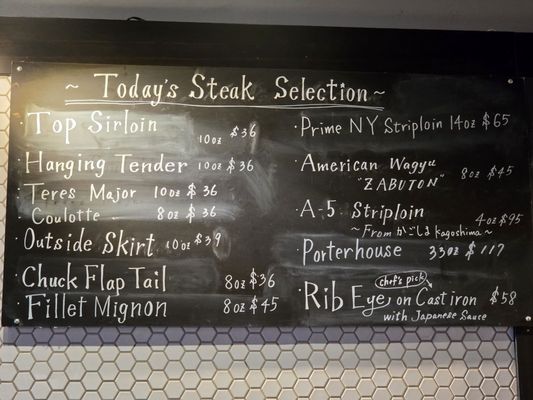 ~ Today's Steak Selection ~
· Top Sirloin 10oz $36
· Hanging Tender 10oz $36
· Teres Major 10oz $36
· Coulotte 8oz $36
· Outside Skirt 10oz $39
· Chuck Flap Tail 8oz $36
· Fillet Mignon 8oz $45
· Prime NY Striploin 14oz $65
· American Wagyu
"ZABUTON" 8oz $45
· A-5 Striploin 4oz $95
~ From かごしま Kagoshima ~
· Porterhouse 33oz $117
chef's pick
· Rib Eye on Cast iron $58
with Japanese Sauce